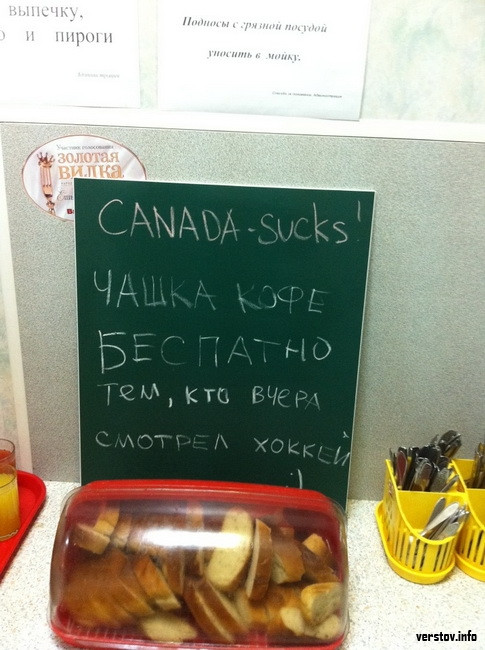 выпечку,
и пироги
Подносы с грязной посудой
уносить в мойку.
Участник голосования
ЗОЛОТАЯ
ВИЛКА
CANADA-SUCKS!
ЧАШКА КОФЕ
БЕСПАТНО
ТЕМ, КТО ВЧЕРА
СМОТРЕЛ ХОККЕЙ
verstov.info